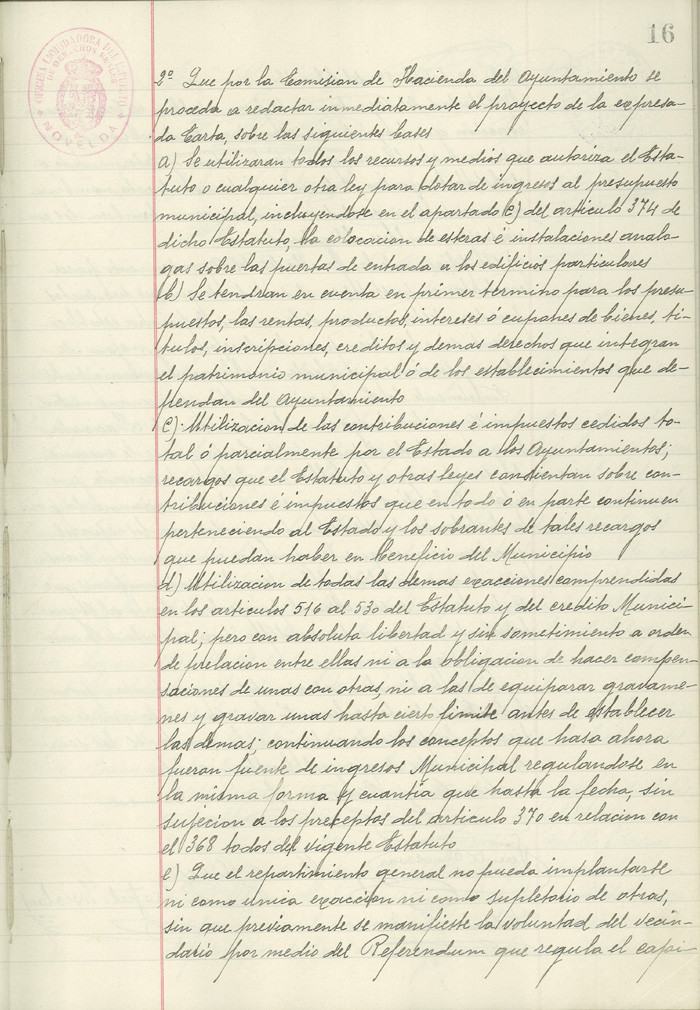 16
OFICINA LIQUIDADORA DEL IMPUESTO
DE DERECHOS REALES
NOVELDA
2º Que por la Comision de Hacienda del Ayuntamiento se
proceda a redactar inmediatamente el proyecto de la expresa-
da Carta, sobre las siguientes bases
a) Se utilizaran todos los recursos y medios que autoriza el Esta-
tuto o cualquier otra ley para dotar de ingresos al presupuesto
municipal, incluyendose en el apartado C) del articulo 374 de
dicho Estatuto, la colocacion de esteras é instalaciones analo-
gas sobre las puertas de entrada a los edificios particulares
b) Se tendran en cuenta en primer termino para los presu-
puestos, las rentas, productos, intereses ó cupones de bienes, ti-
tulos, inscripciones, creditos y demas derechos que integran
el patrimonio municipal ó de los establecimientos que de-
pendan del Ayuntamiento
C) Utilizacion de las contribuciones é impuestos cedidos to-
tal ó parcialmente por el Estado a los Ayuntamientos;
recargos que el Estatuto y otras leyes consientan sobre con-
tribuciones é impuestos que en todo ó en parte continuen
perteneciendo al Estado y los sobrantes de tales recargos
que puedan haber en beneficio del Municipio
d) Utilizacion de todas las demas exacciones comprendidas
en los articulos 516 al 530 del Estatuto y del credito Munici-
pal; pero con absoluta libertad y sin sometimiento a orden
de prelacion entre ellas ni a la obligacion de hacer compen-
saciones de unas con otras, ni a las de equiparar gravame-
nes y gravar unas hasta cierto limite antes de establecer
las demas; continuando los conceptos que hasa ahora
fueron fuente de ingresos Municipal regulandose en
la misma forma y cuantia que hasta la fecha, sin
sujecion a los preceptos del articulo 370 en relacion con
el 368 todos del vigente Estatuto
e) Que el repartimiento general no pueda implantarse
ni como unica exaccion ni como supletorio de otras,
sin que previamente se manifieste la voluntad del vecin-
dario por medio del Referendum que regula el capi-